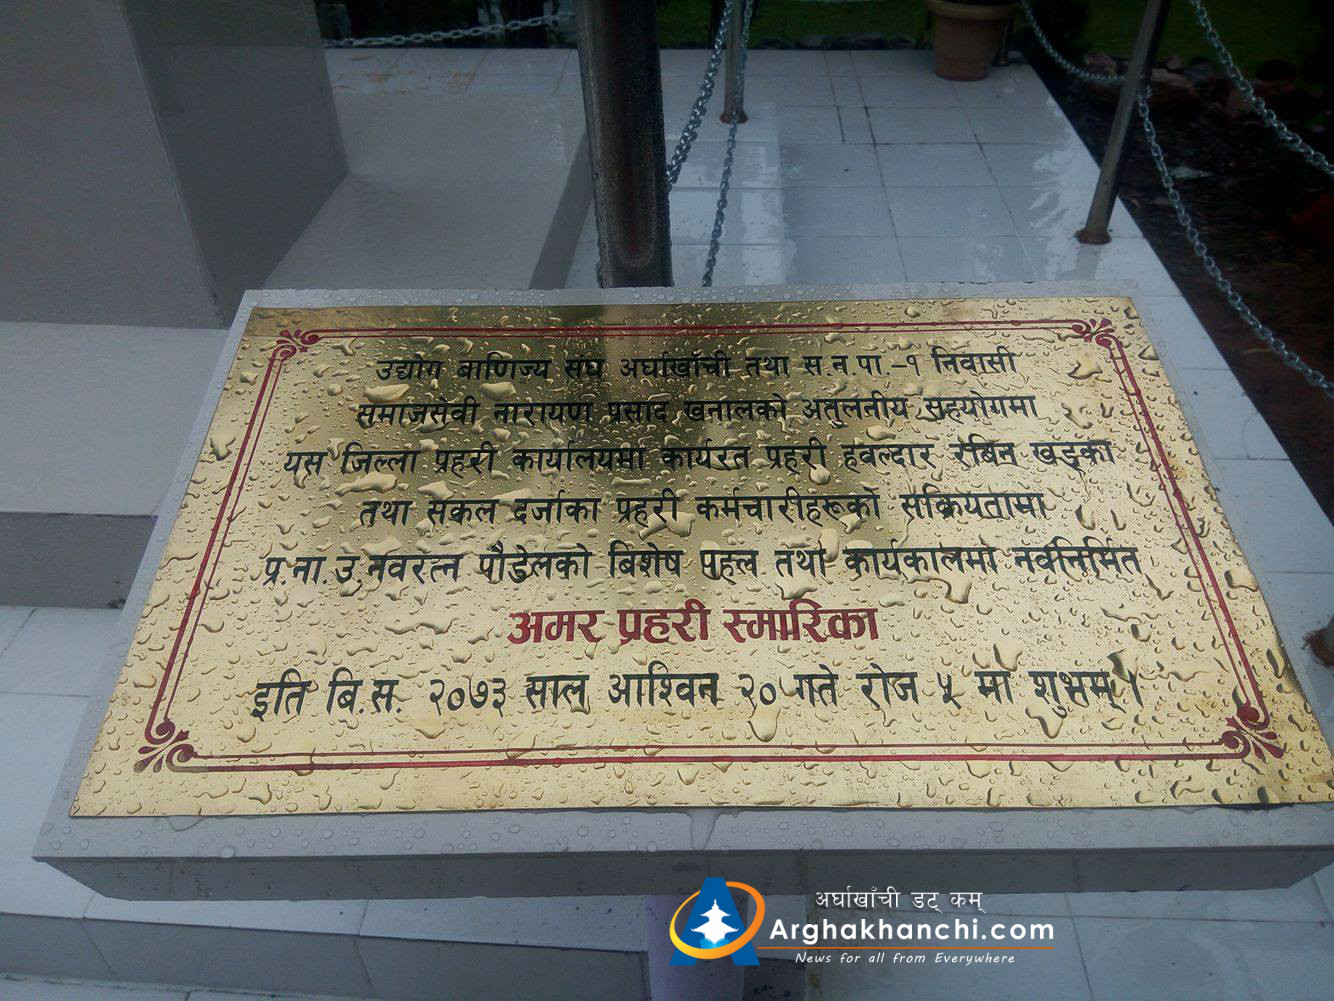 उद्योग बाणिज्य संघ अर्घाखाँची तथा स.न.पा.-१ निवासी
समाजसेवी नारायण प्रसाद खनालको अतुलनीय सहयोगमा
यस जिल्ला प्रहरी कार्यालयमा कार्यरत प्रहरी हवल्दार रबिन खड्का
तथा सकल दर्जाका प्रहरी कर्मचारीहरूको सक्रियतामा
प्र.ना.उ.नवरत्न पौडेलको बिशेष पहल तथा कार्यकालमा नवनिर्मित
अमर प्रहरी स्मारिका
इति बि.स. २०७३ साल आश्विन २० गते रोज ५ मा शुभम् ।
अर्घाखाँची डट् कम्
Arghakhanchi.com
News for all from Everywhere